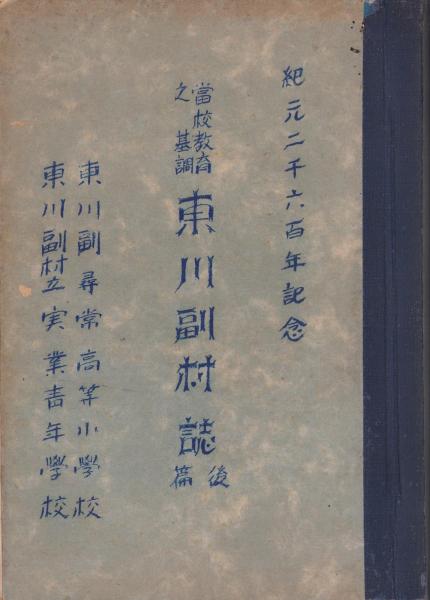 紀元二千六百年記念
當校教育
之基調
東川副村誌
後
篇
東川副尋常高等小學校
東川副村立実業青年學校